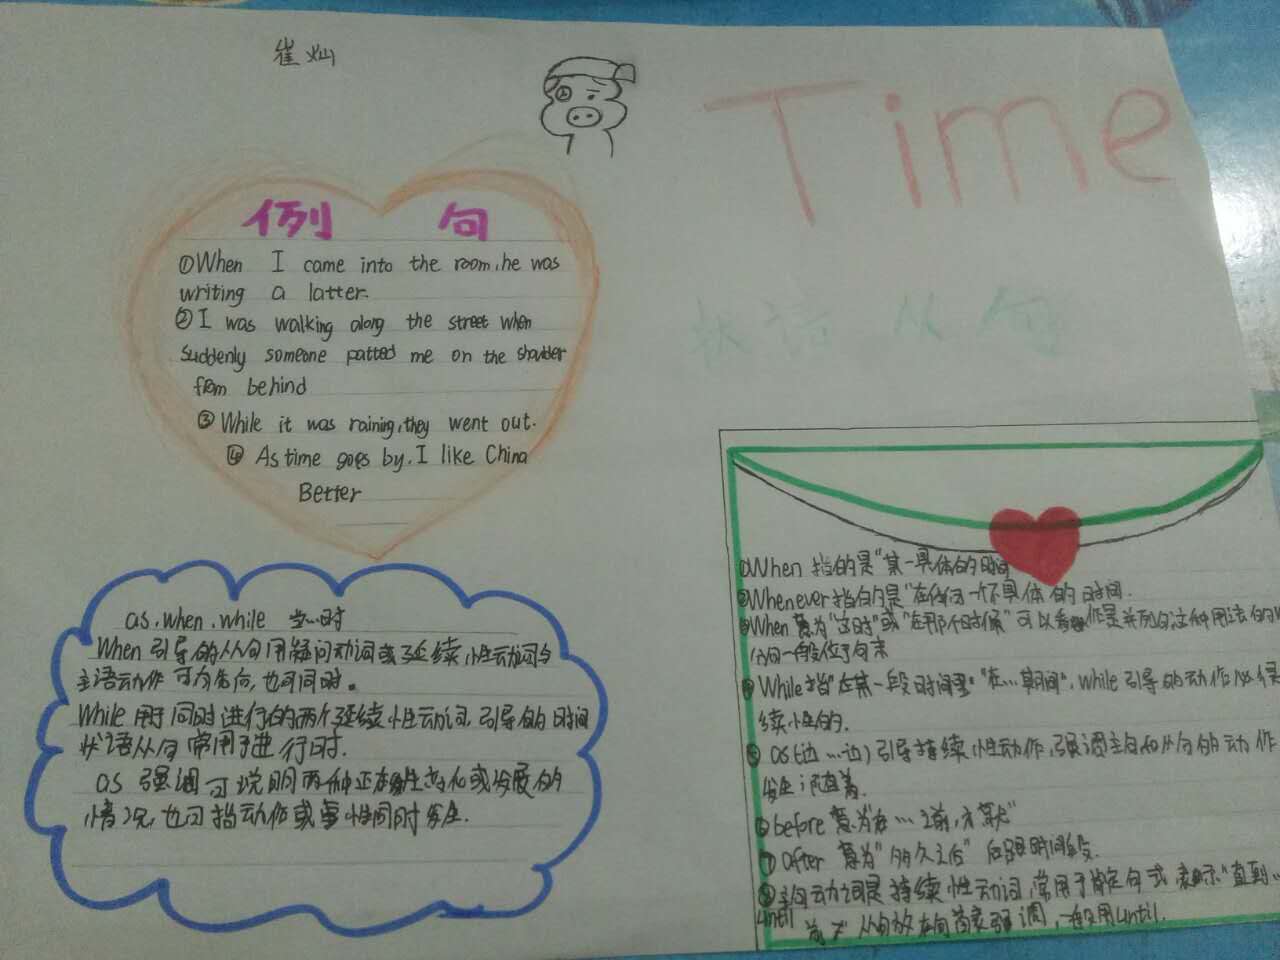 崔灿
Time
状语从句
例 句
①When I came into the room, he was
writing a latter.
②I was walking along the street when
suddenly someone patted me on the shoulder
from behind
③While it was raining, they went out.
④As time goes by. I like China
Better
as.when.while 当…时
When 引导的从句用疑问动词或延续性动词与
主语动作可为先向,也可同时。
While 用于同时进行的两个延续性动词,引导的时间
状语从句常用于进行时.
as 强调可说明两种正在发生变化或发展的
情况,也可指动作或事性同时发生.
①When 指的是"某一具体的时间
②Whenever 指的是"在任何一个不具体的时间.
③When 意为"这时"或"在那个时候"可以看作是并列句这种用法的
分句一般位于句末
④While 指"在某一段时间里""在…期间",while 引导的动作必须
续性的.
⑤as(边…边)引导持续性动作,强调主句和从句的动作
发生 随着.
⑥before 意为在…之前,才
⑦after 意为"多久之后" 后跟时间段.
⑧主句动词是持续性动词,常用于肯定句式表示"直到…
until 从句放在句首表强调,一般用until.